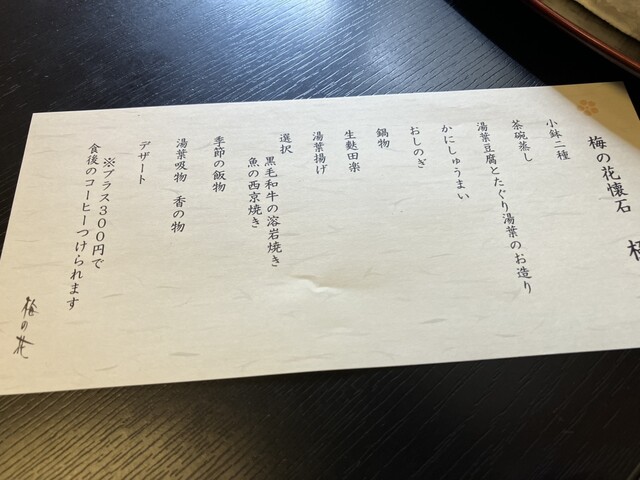 梅の花懐石
小鉢二種
茶碗蒸し
湯葉豆腐とたぐり湯葉のお造り
かにしゅうまい
おしのぎ
鍋物
生麩田楽
湯葉揚げ
選択
黒毛和牛の溶岩焼き
魚の西京焼き
季節の飯物
湯葉吸物　香の物
デザート
※プラス300円で
食後のコーヒーつけられます
梅の花